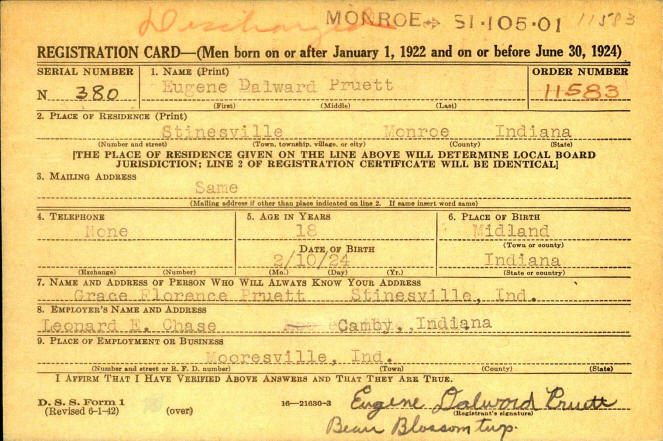 Discharged MONROE → 51-105-01 11583
REGISTRATION CARD—(Men born on or after January 1, 1922 and on or before June 30, 1924)
SERIAL NUMBER 1. NAME (Print) ORDER NUMBER
N 380 Eugene Dalward Pruett 11583
(First) (Middle) (Last)
2. PLACE OF RESIDENCE (Print)
Stinesville Monroe Indiana
(Number and street) (Town, township, village, or city) (County) (State)
[THE PLACE OF RESIDENCE GIVEN ON THE LINE ABOVE WILL DETERMINE LOCAL BOARD
JURISDICTION; LINE 2 OF REGISTRATION CERTIFICATE WILL BE IDENTICAL]
3. MAILING ADDRESS
Same
(Mailing address if other than place indicated on line 2. If same insert word same)
4. TELEPHONE 5. AGE IN YEARS 6. PLACE OF BIRTH
None 18 Midland
DATE OF BIRTH (Town or county)
2/10/24 Indiana
(Exchange) (Number) (Mo.) (Day) (Yr.) (State or country)
7. NAME AND ADDRESS OF PERSON WHO WILL ALWAYS KNOW YOUR ADDRESS
Grace Florence Pruett Stinesville, Ind.
8. EMPLOYER'S NAME AND ADDRESS
Leonard E. Chase Camby, Indiana
9. PLACE OF EMPLOYMENT OR BUSINESS
Mooresville, Ind.
(Number and street or R. F. D. number) (Town) (County) (State)
I AFFIRM THAT I HAVE VERIFIED ABOVE ANSWERS AND THAT THEY ARE TRUE.
D. S. S. Form 1
(Revised 6-1-42) (over) 16—21630-3 Eugene Dalword Pruett
(Registrant's signature)
Bean Blossom twp.